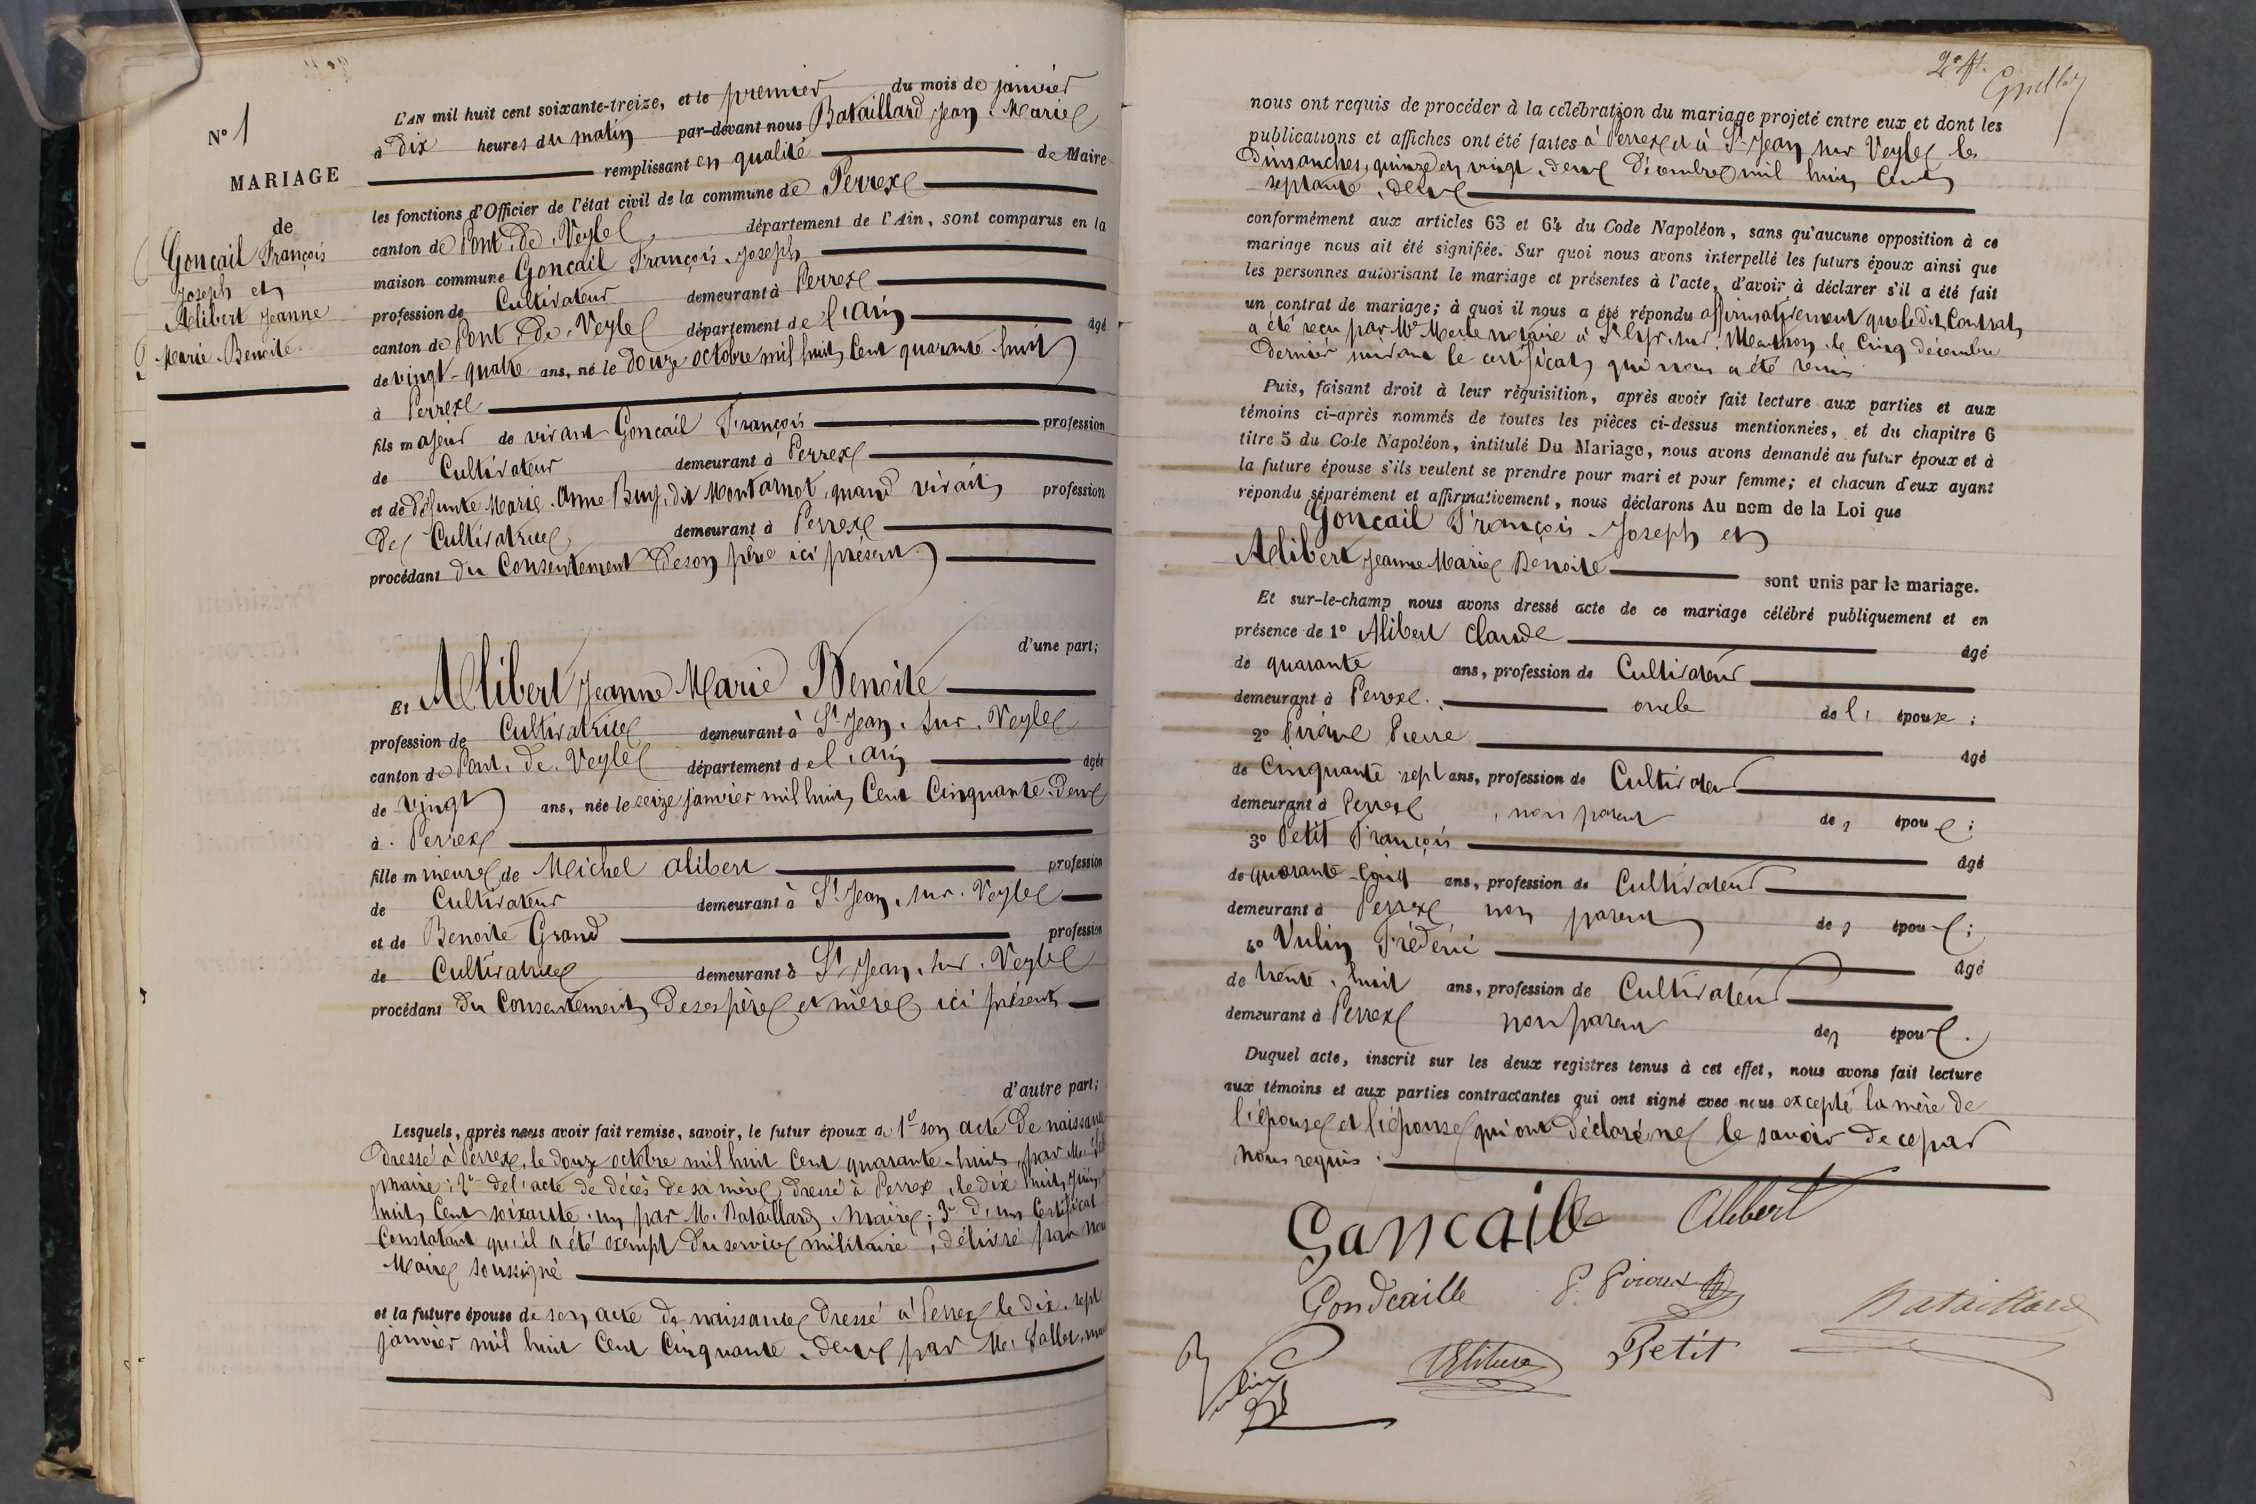 N° 1
MARIAGE
de
Goncail François
Joseph et
Alibert Jeanne
Marie Benoite.
L'AN mil huit cent soixante-treize, et le premier du mois de janvier
à dix heures du matin par-devant nous Bataillard Jean Marie
remplissant en qualité de Maire
les fonctions d'Officier de l'état civil de la commune de Perrex
canton de Pont-de-Veyle département de l'Ain, sont comparus en la
maison commune Goncail François-Joseph
profession de Cultivateur demeurant à Perrex
canton de Pont-de-Veyle département de l'ain âgé
de vingt-quatre ans, né le douze octobre mil huit Cent quarante-huit
à Perrex
fils majeur de vivant Goncail François profession
de Cultivateur demeurant à Perrex
et de défunte Marie-Anne Buy, dit Montarnot, quand vivait profession
de Cultivatrice demeurant à Perrex
procédant du Consentement de son père ici présent
d'une part;
Et Alibert Jeanne Marie Benoite
profession de Cultivatrice demeurant à St Jean-sur-Veyle
canton de Pont-de-Veyle département de l'ain âgée
de vingt ans, née le seize janvier mil huit Cent Cinquante-deux
à Perrex
fille mineure de Michel alibert profession
de Cultivateur demeurant à St Jean-sur-Veyle
et de Benoite Grand profession
de Cultivatrice demeurant à St Jean-sur-Veyle
procédant du Consentement de ses père et mère ici présent
d'autre part;
Lesquels, après nous avoir fait remise, savoir, le futur époux de 1° son acte de naissance
dressé à Perrex, le douze octobre mil huit Cent quarante-huit, par M.
maire; 2° de l'acte de décès de sa mère, dressé à Perrex, le dix huit juin
huit Cent soixante-un par M. Bataillard, maire; 3° d'un Certificat
Constatant qu'il a été exempt du service militaire, délivré par nous
Maire soussigné
et la future épouse de son acte de naissance dressé à Perrex le dix-sept
janvier mil huit Cent Cinquante-deux par M.
nous ont requis de procéder à la célébration du mariage projeté entre eux et dont les
publications et affiches ont été faites à Perrex et à St Jean sur Veyle les
Dimanches, quinze et vingt-deux décembre mil huit Cent
septante-deux
conformément aux articles 63 et 64 du Code Napoléon, sans qu'aucune opposition à ce
mariage nous ait été signifiée. Sur quoi nous avons interpellé les futurs époux ainsi que
les personnes autorisant le mariage et présentes à l'acte, d'avoir à déclarer s'il a été fait
un contrat de mariage; à quoi il nous a été répondu affirmativement que ledit Contrat
a été reçu par Me Merle notaire à St Cyr-sur-Menthon, le Cinq décembre
dernier suivant le certificat qui nous a été remis
Puis, faisant droit à leur réquisition, après avoir fait lecture aux parties et aux
témoins ci-après nommés de toutes les pièces ci-dessus mentionnées, et du chapitre 6
titre 5 du Code Napoléon, intitulé Du Mariage, nous avons demandé au futur époux et à
la future épouse s'ils veulent se prendre pour mari et pour femme; et chacun d'eux ayant
répondu séparément et affirmativement, nous déclarons Au nom de la Loi que
Goncail François-Joseph et
Alibert Jeanne Marie Benoite sont unis par le mariage.
Et sur-le-champ nous avons dressé acte de ce mariage célébré publiquement et en
présence de 1° Alibert Claude âgé
de quarante ans, profession de Cultivateur
demeurant à Perrex. oncle de l' épouse;
2° Piroux Pierre âgé
de Cinquante sept ans, profession de Cultivateur
demeurant à Perrex, non parent des époux;
3° Petit François âgé
de quarante-Cinq ans, profession de Cultivateur
demeurant à Perrex non parent des époux;
4° Vulin Frédéric âgé
de trente-huit ans, profession de Cultivateur
demeurant à Perrex non parent des époux.
Duquel acte, inscrit sur les deux registres tenus à cet effet, nous avons fait lecture
aux témoins et aux parties contractantes qui ont signé avec nous excepté la mère de
l'épouse et l'épouse qui ont déclaré ne le savoir de ce par
nous requis.
Gancaille Alibert
Gondcaille P. Piroux
Bataillard
Vulin Alibert Petit